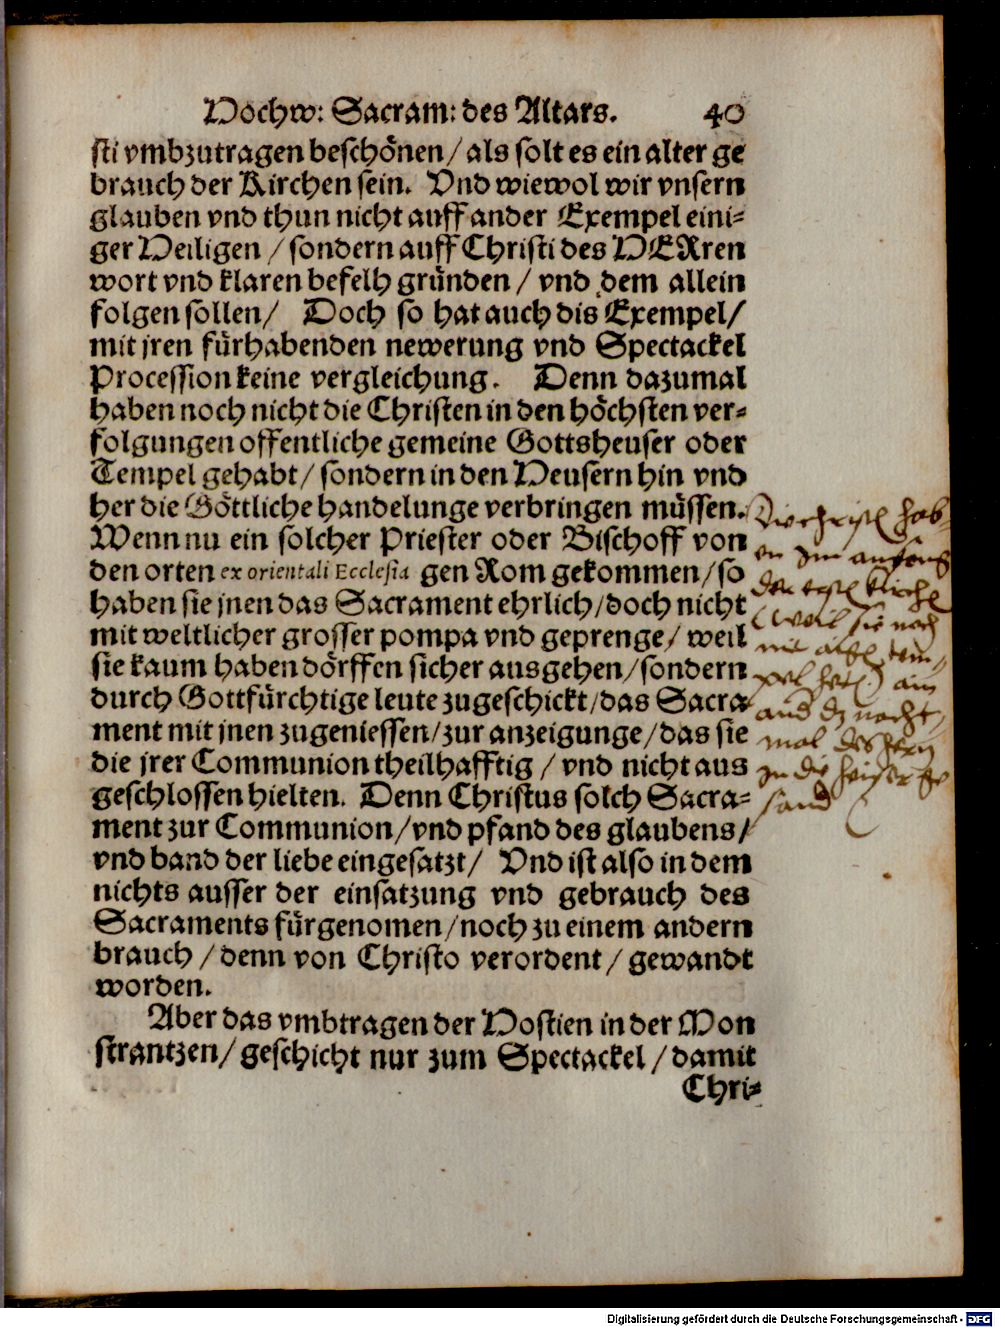 Hochw: Sacram: des Altars. 40
sti vmbzutragen beschönen / als solt es ein alter ge
brauch der Kirchen sein. Vnd wiewol wir vnsern
glauben vnd thun nicht auff ander Exempel eini-
ger Heiligen / sondern auff Christi des HERren
wort vnd klaren befelh gründen / vnd dem allein
folgen sollen / Doch so hat auch dis Exempel /
mit jren fürhabenden newerung vnd Spectackel
Procession keine vergleichung. Denn dazumal
haben noch nicht die Christen in den höchsten ver-
folgungen offentliche gemeine Gottsheuser oder
Tempel gehabt / sondern in den Heusern hin vnd
her die Göttliche handelunge verbringen müssen.
Wenn nu ein solcher Priester oder Bischoff von
den orten ex orientali Ecclesia gen Rom gekommen / so
haben sie jnen das Sacrament ehrlich / doch nicht
mit weltlicher grosser pompa vnd geprenge / weil
sie kaum haben dörffen sicher ausgehen / sondern
durch Gottfürchtige leute zugeschickt / das Sacra-
ment mit jnen zugeniessen / zur anzeigunge / das sie
die jrer Communion theilhafftig / vnd nicht aus
geschlossen hielten. Denn Christus solch Sacra-
ment zur Communion / vnd pfand des glaubens /
vnd band der liebe eingesatzt / Vnd ist also in dem
nichts ausser der einsatzung vnd gebrauch des
Sacraments fürgenomen / noch zu einem andern
brauch / denn von Christo verordent / gewandt
worden.
Aber das vmbtragen der Hostien in der Mon
strantzen / geschicht nur zum Spectackel / damit
Chri-
Die christen hab-
en im anfang
der ersten kirchen
(weil sie noch
nie
pel
nacht-
mal des hern
in die heiser ge
sand
Digitalisierung gefördert durch die Deutsche Forschungsgemeinschaft - DFG